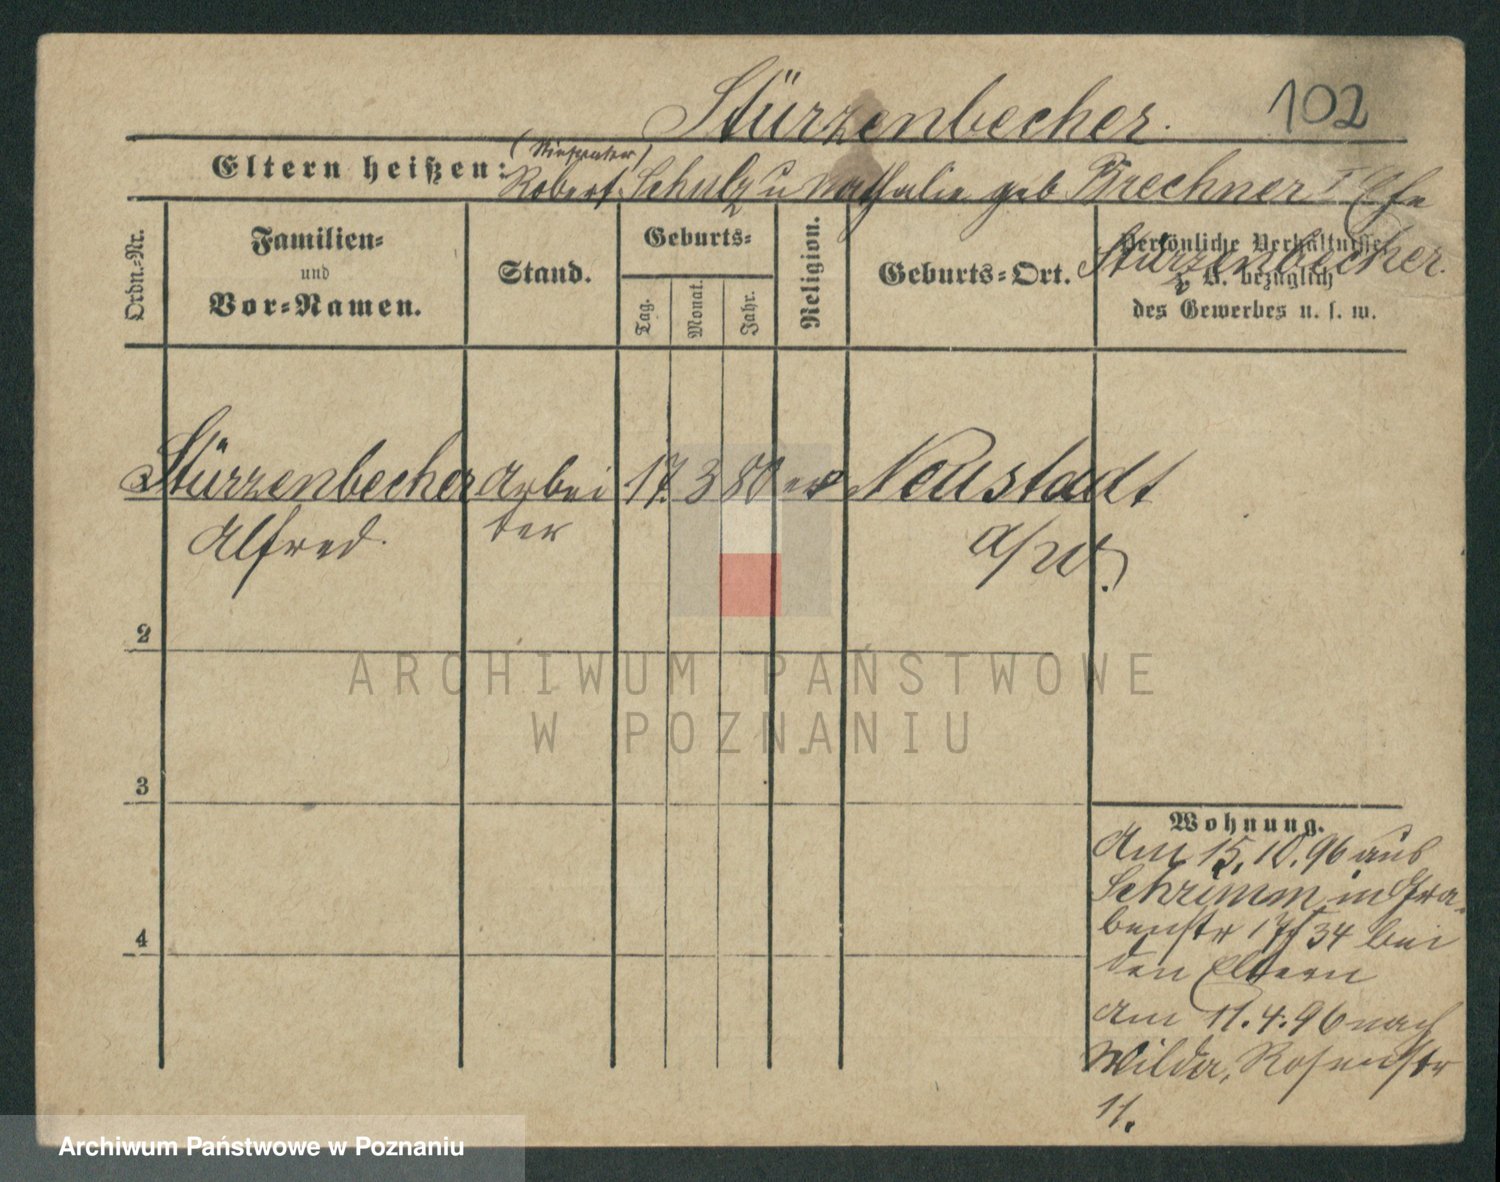 Stürzenbecher.
102
(Stiefvater)
Eltern heißen: Robert Schulz u Nathalie geb Brechner I Ehe
Stürzenbecher.
Ordn.-Nr.
Familien-
und
Vor-Namen.
Stand.
Geburts-
Tag.
Monat.
Jahr.
Religion.
Geburts-Ort.
Persönliche Verhältnisse
z. B. bezüglich
des Gewerbes u. s. w.
Stürzenbecher Arbei 17. 3 80 ev Neustadt
Alfred. ter a/W.
2
ARCHIWUM PAŃSTWOWE
W POZNANIU
3
4
Wohnung.
Am 15.10.96 aus
Schrimm in Gra-
benstr 34 bei
den Eltern
Am 11.4.96 nach
Wilda, Rosenstr
11.
Archiwum Państwowe w Poznaniu